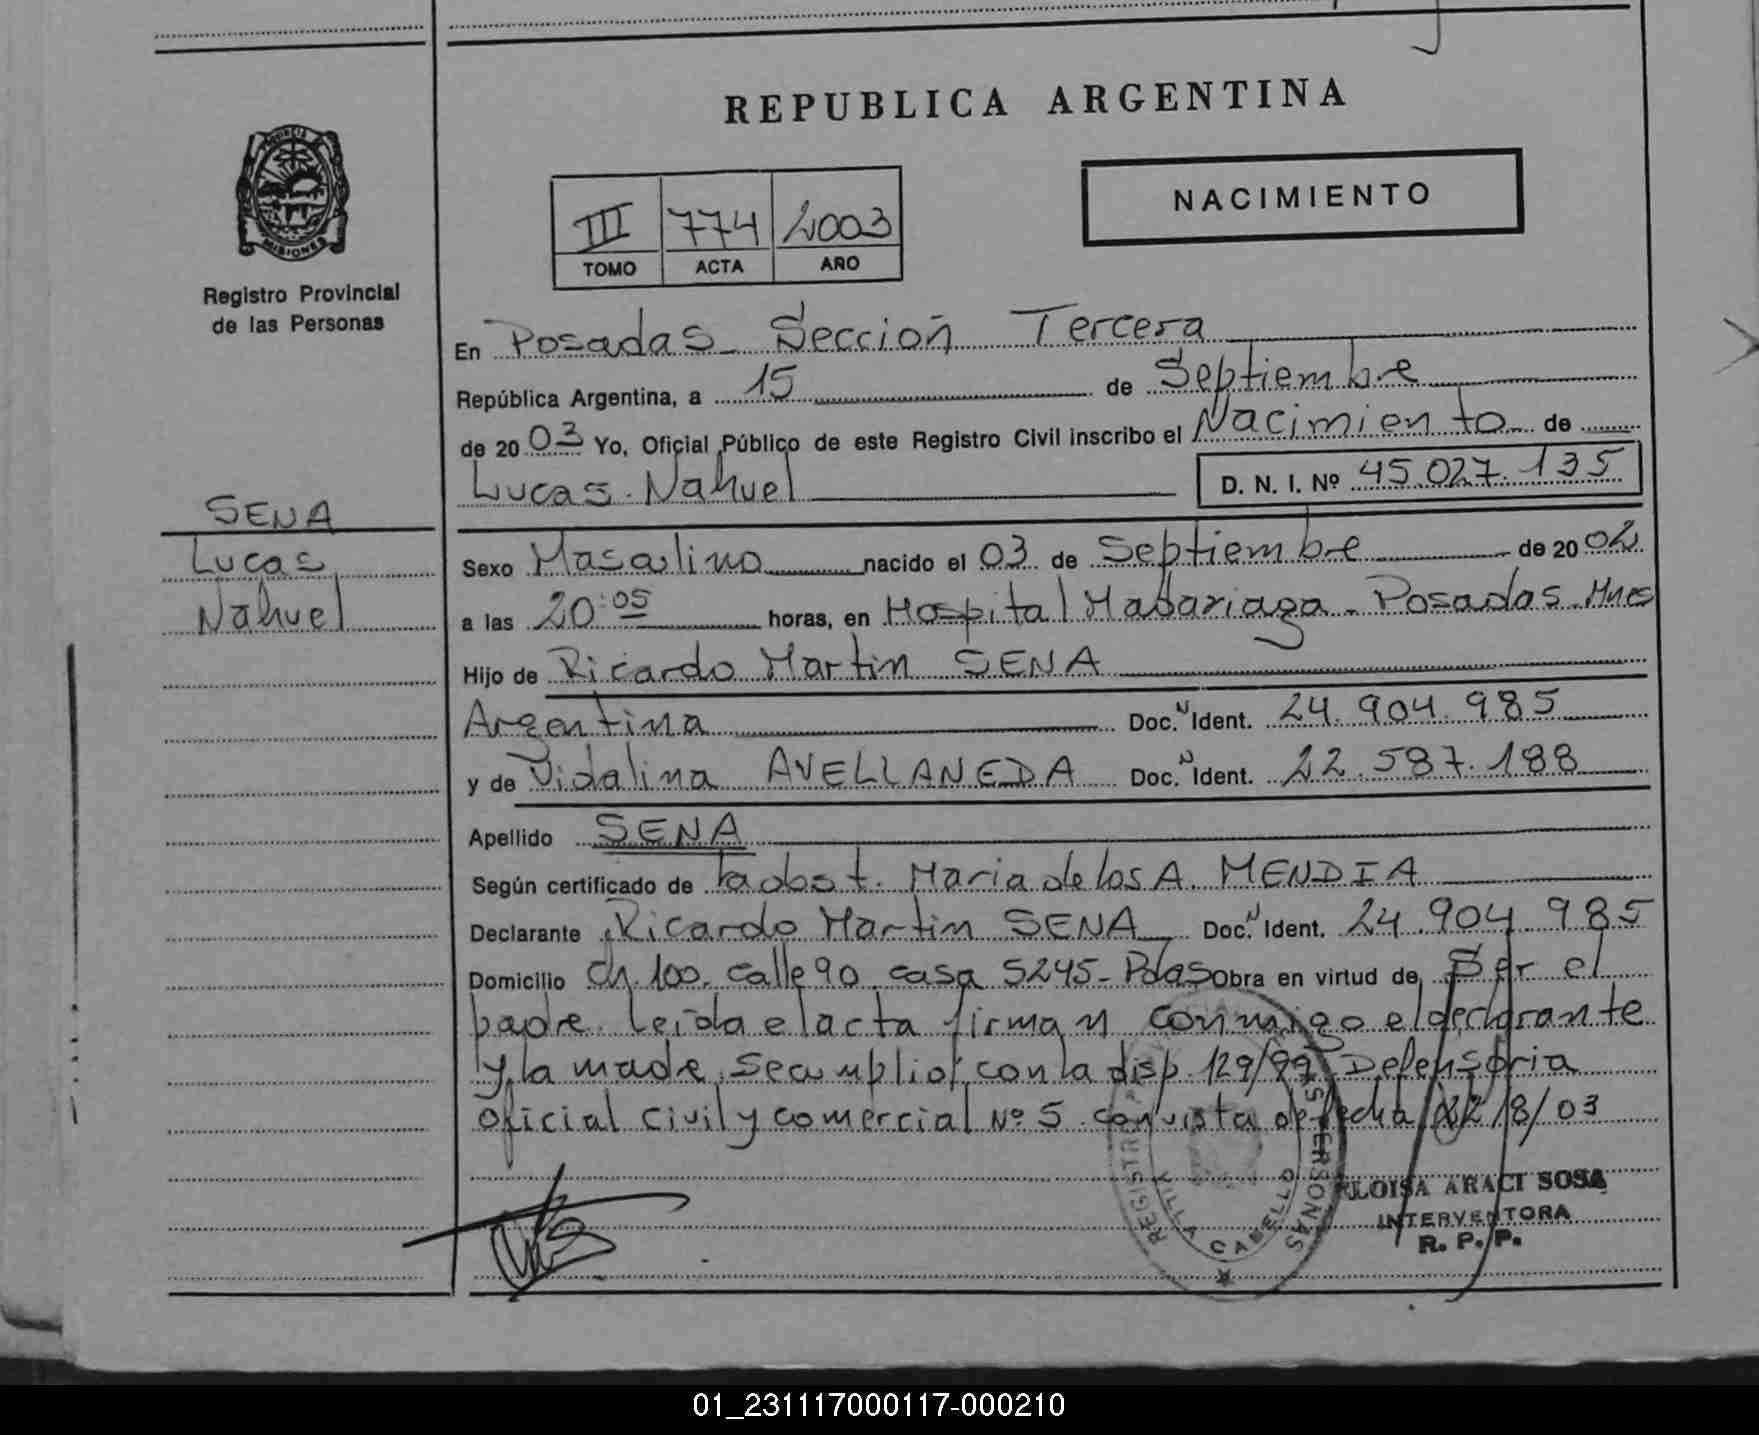 REPUBLICA ARGENTINA
PROVINCIA
MISIONES
Registro Provincial
de las Personas
III 774 2003
TOMO ACTA AÑO
NACIMIENTO
En Posadas Sección Tercera
República Argentina, a 15 de Septiembre
de 20 03 Yo, Oficial Público de este Registro Civil inscribo el Nacimiento de
Lucas Nahuel D. N. I. Nº 45.027.135
SENA
Lucas
Nahuel
Sexo Masculino nacido el 03 de Septiembre de 20 02
a las 20:05 horas, en Hospital Madariaga - Posadas Mnes
Hijo de Ricardo Martin SENA
Argentina Doc. N Ident. 24.904.985
y de Vidalina AVELLANEDA Doc. N Ident. 22.587.188
Apellido SENA
Según certificado de obst. Maria de los A. MENDIA
Declarante Ricardo Martin SENA Doc. N Ident. 24.904.985
Domicilio Ch. 100. calle 90 casa 5245 - Pdas Obra en virtud de Ser el
padre leida el acta firman conmigo el declarante
y la madre. Se cumplio con la disp. 129/99 Defensoria
Oficial Civil y comercial Nº 5 con vista de fecha 22/8/03
VILLA CABELLO
ELOISA ARACI SOSA
INTERVENTORA
R. P. P.
01_231117000117-000210